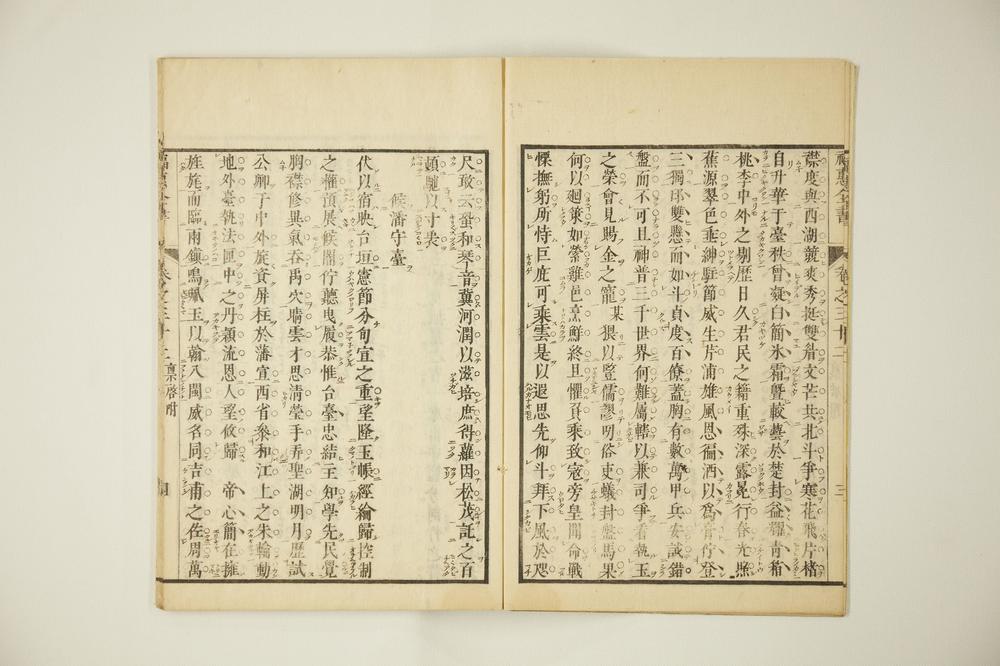 襟度與西湖競爽秀挺雙眥文芒共北斗爭寒花飛片楮
自升華于臺秩曾凝白簡氷霜曁較藝於楚封益耀青箱
桃李中外之剔歷日久君民之籍重殊深露冕行春光照
蕉源翠色垂紳駐節威生芹浦雄風恩徧酒以爲育佇登
三獨雙懸而如斗貞度百僚蓋胸有數萬甲兵安試錯
盤而不可且神普三千世界何難屬轄以兼司爭看執玉
之榮會見賜金之寵某猥以豎儒謬叨俗吏蟻封盤馬果
何以廻策如縈雞邑烹鮮終且懼負乘致寇旁皇聞命戰
慄撫躬所恃巨庇可乘雲是以遐思先仰斗拜下風於咫
尺敢云蛩和琴音冀河潤以滋培庶得蘿因松茂託之百
頓臚以寸衷
候潘守臺
代以宿映台垣憲節分旬宣之重望隆玉帳經綸歸控制
之權預展候閣佇聽曳履恭惟台臺忠結主知學先民覺
胸襟修異氣呑丙穴晴雲才思淸瑩手弄聖湖明月歷試
公卿于中外旋資屏柱於藩宣西省叅和江上之朱輪動
地外臺執法匣中之丹頴流恩人望攸歸 帝心簡在擁
旌旄而臨雨鎮鳴珮玉以翰八閩威名同吉甫之佐周萬
福惠全書
卷之三十二
稟啓附
四
福惠全書
卷之三十二
三